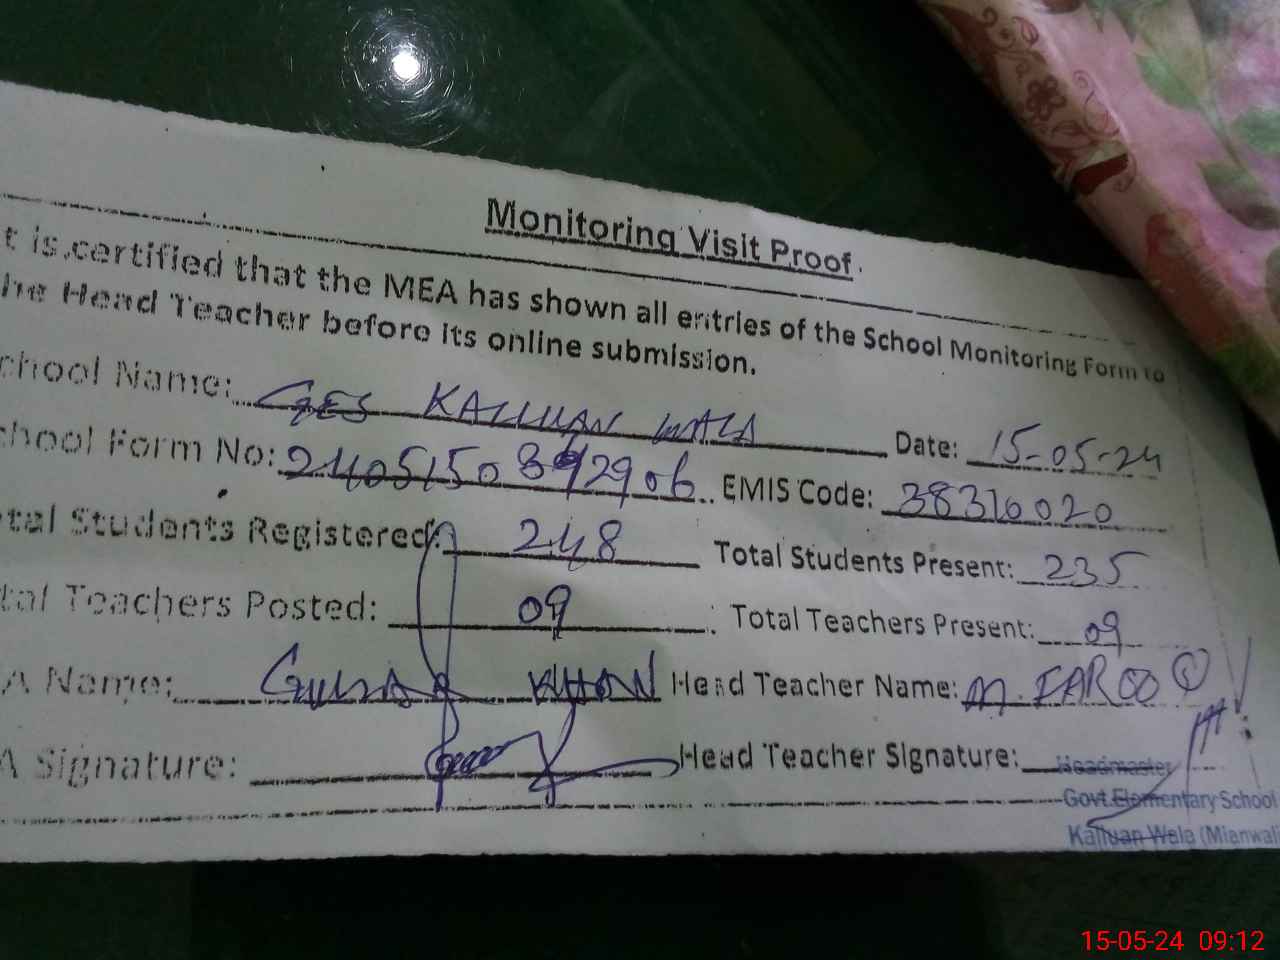 Monitoring Visit Proof.
t is certified that the MEA has shown all entries of the School Monitoring Form to
he Head Teacher before its online submission.
chool Name: GES KALLUAN WALA Date: 15-05-24
chool Form No: EMIS Code: 38310020
tal Students Registered: 248 Total Students Present: 235
tal Teachers Posted: 09 Total Teachers Present: 09
A Name: KHAN Head Teacher Name: M. FAROOQ
A Signature: Head Teacher Signature:
Headmaster
Govt. Elementary School
Kalluan Wala (Mianwali
15-05-24 09:12